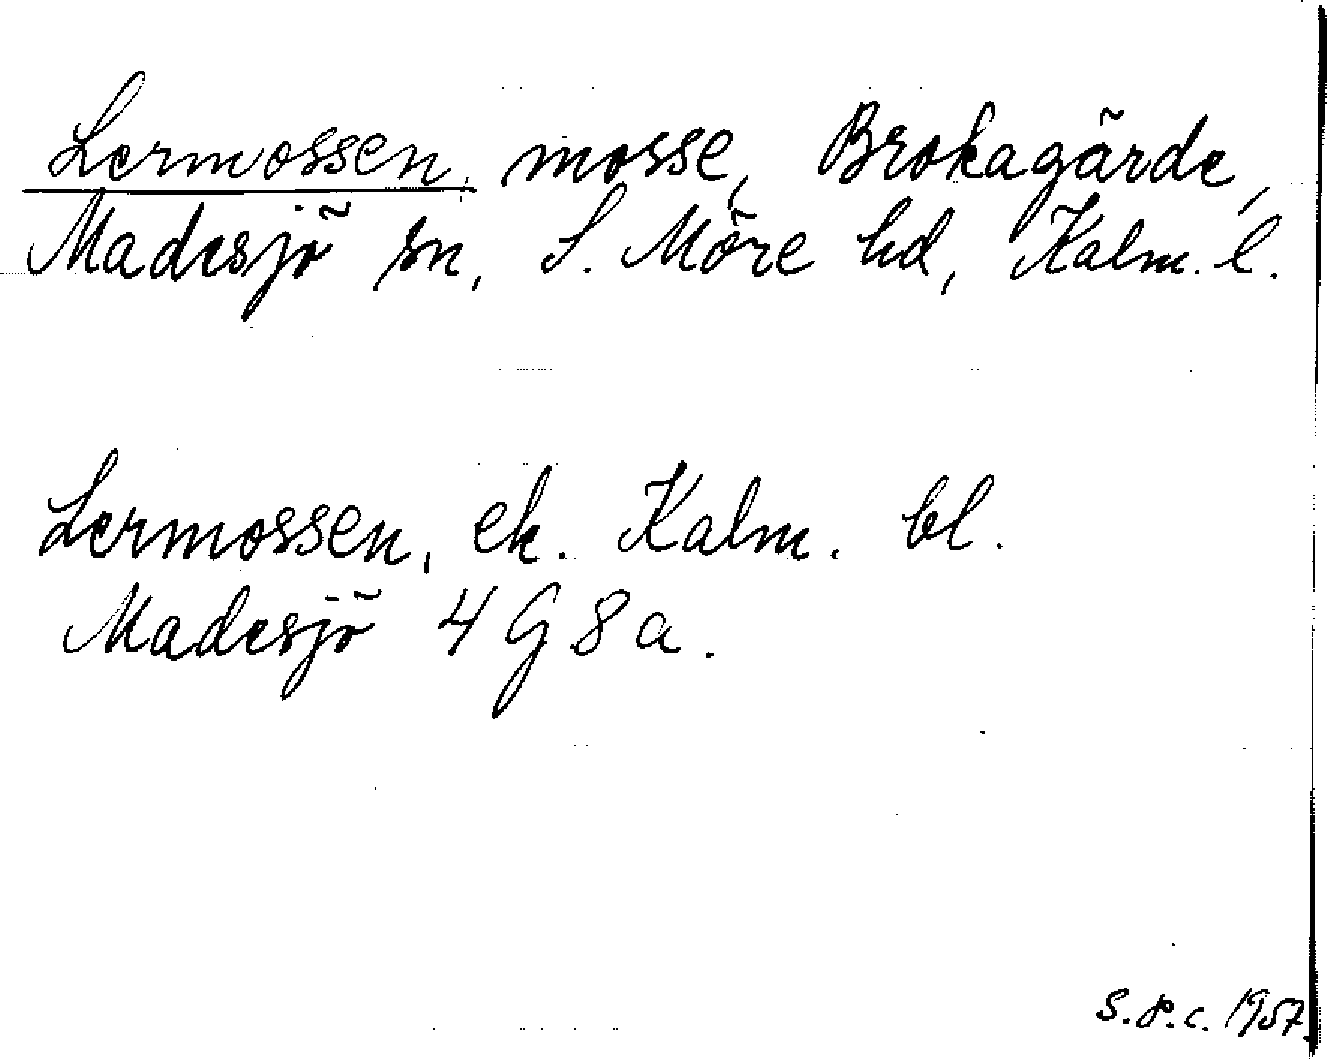 Lermossen, mosse, Brokagärde,
Madesjö sn, S. Möre hd, Kalm. l.
Lermossen, ek. Kalm. bl.
Madesjö 4 G 8 a.
S. P. C. 1957